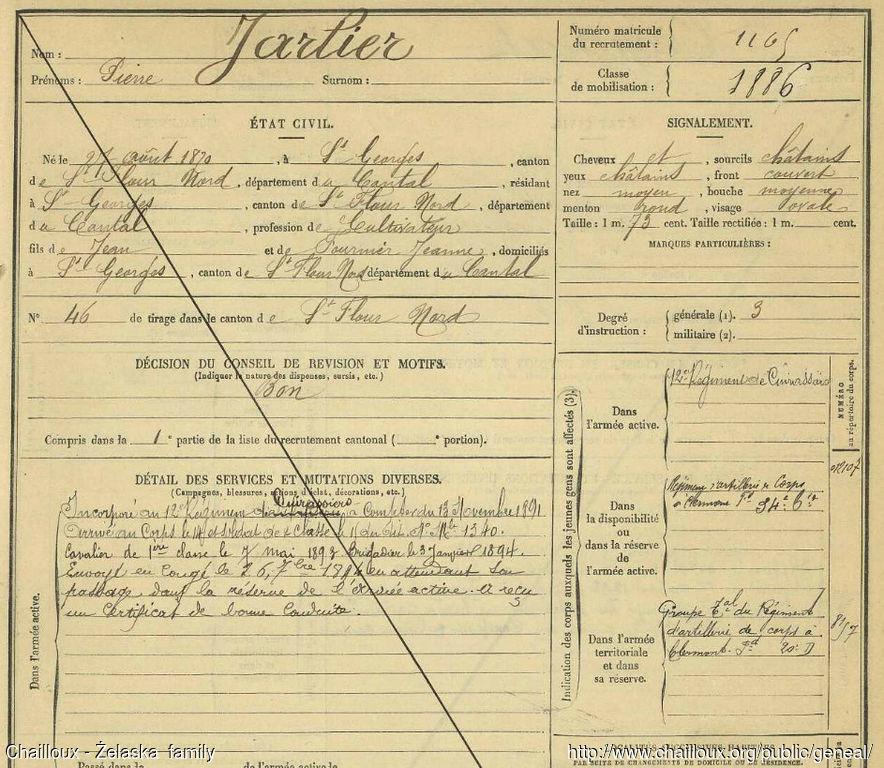 Nom : Jarlier
Prénoms : Pierre Surnom :
Numéro matricule du recrutement : 1165
Classe de mobilisation : 1886
ÉTAT CIVIL.
Né le 27 août 1870, à St Georges, canton
de St Flour Nord, département du Cantal, résidant
à St Georges, canton de St Flour Nord, département
du Cantal, profession de Cultivateur
fils de Jean et de Fournier Jeanne, domiciliés
à St Georges, canton de St Flour Nord département du Cantal
N° 46 de tirage dans le canton de St Flour Nord
SIGNALEMENT.
Cheveux et, sourcils châtains
yeux châtains, front couvert
nez moyen, bouche moyenne
menton rond, visage ovale
Taille : 1 m. 73 cent. Taille rectifiée : 1 m. cent.
MARQUES PARTICULIÈRES :
Degré d'instruction :
générale (1). 3
militaire (2).
DÉCISION DU CONSEIL DE REVISION ET MOTIFS.
(Indiquer la nature des dispenses, sursis, etc.)
Bon
Compris dans la 1e partie de la liste du recrutement cantonal ( e portion).
DÉTAIL DES SERVICES ET MUTATIONS DIVERSES.
(Campagnes, blessures, actions d'éclat, décorations, etc.)
Cuirassiers
Incorporé au 12e Régiment de à compter du 13 Novembre 1891
Arrivé au Corps le et soldat de 2e Classe le dit. No Mle 1340.
Cavalier de 1ère classe le 7 mai 1893 Brigadier le 3 Janvier 1894.
Envoyé en Congé le 26 7bre 1894 en attendant son
passage dans la réserve de l'Armée active. A reçu
un Certificat de bonne Conduite.
Dans l'armée active.
Indication des corps auxquels les jeunes gens sont affectés (3).
NUMÉRO au répertoire du corps.
Dans l'armée active.
12e Régiment de Cuirassiers
Dans la disponibilité ou dans la réserve de l'armée active.
Régiment d'artillerie de Corps
à Clermont Fd
Dans l'armée territoriale et dans sa réserve.
Groupe Tal du Régiment
d'artillerie de corps à
Clermont Fd
PAR SUITE DE CHANGEMENTS DE DOMICILE OU DE RÉSIDENCE.
Passé dans la de l'armée active le
Chailloux - Želaska family
http://www.chailloux.org/public/geneal/